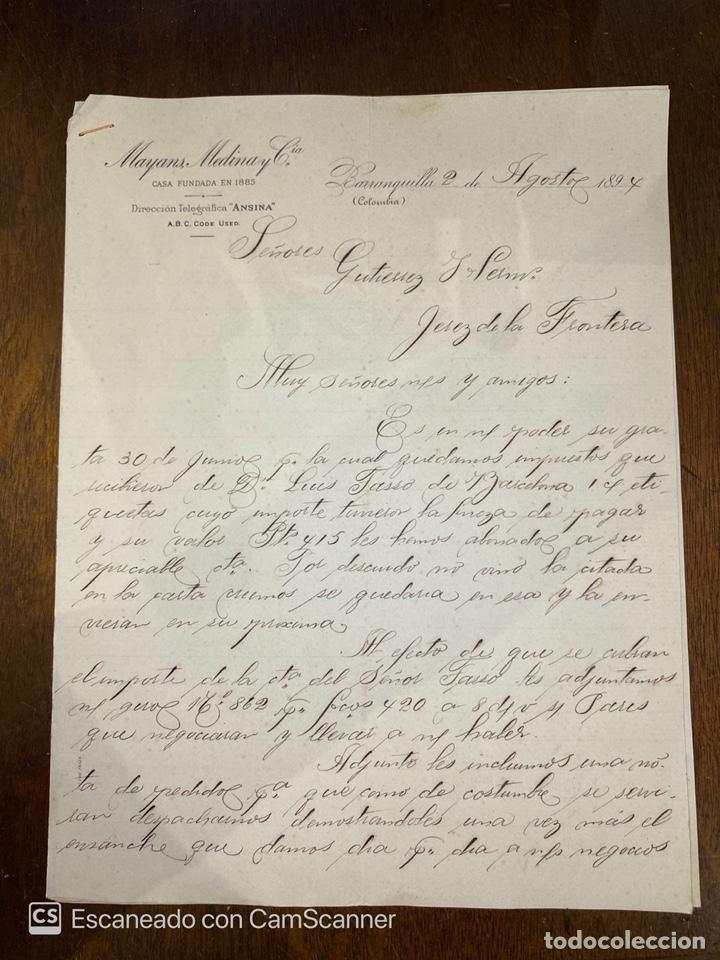 Mayans, Medina y C.ia
CASA FUNDADA EN 1885
Dirección Telegráfica "ANSINA"
A.B.C. CODE USED.
Barranquilla 2 de Agosto 1894
(Colombia)
Señores
Gutierrez Herm.
Jerez de la Frontera
Muy señores nrs y amigos:
Es en nr poder su gra-
ta 30 de Junio pr. la cual quedamos impuestos que
recibieron de Dn. Luis Tasso de Barcelona 14 eti-
quetas cuyo importe tuvieron la fineza de pagar
y su valor Pts 415 les hemos abonado a su
apreciable cta. Por descuido no vino la citada
en la carta creemos se quedaria en esa y la en-
vieran en su proxima
Al efecto de que se cubran
el importe de la cta del Señor Tasso les adjuntamos
nr giro No 862 pr. fcos 420 a 8 d/v s/ Paris
que negociaran y llevar a nr haber.
Adjunto les incluimos una no-
ta de pedido pa. que como de costumbre se servi-
ran despacharnos demostrandoles una vez mas el
ensanche que damos dia pr. dia a nrs negocios
CS Escaneado con CamScanner
todocoleccion